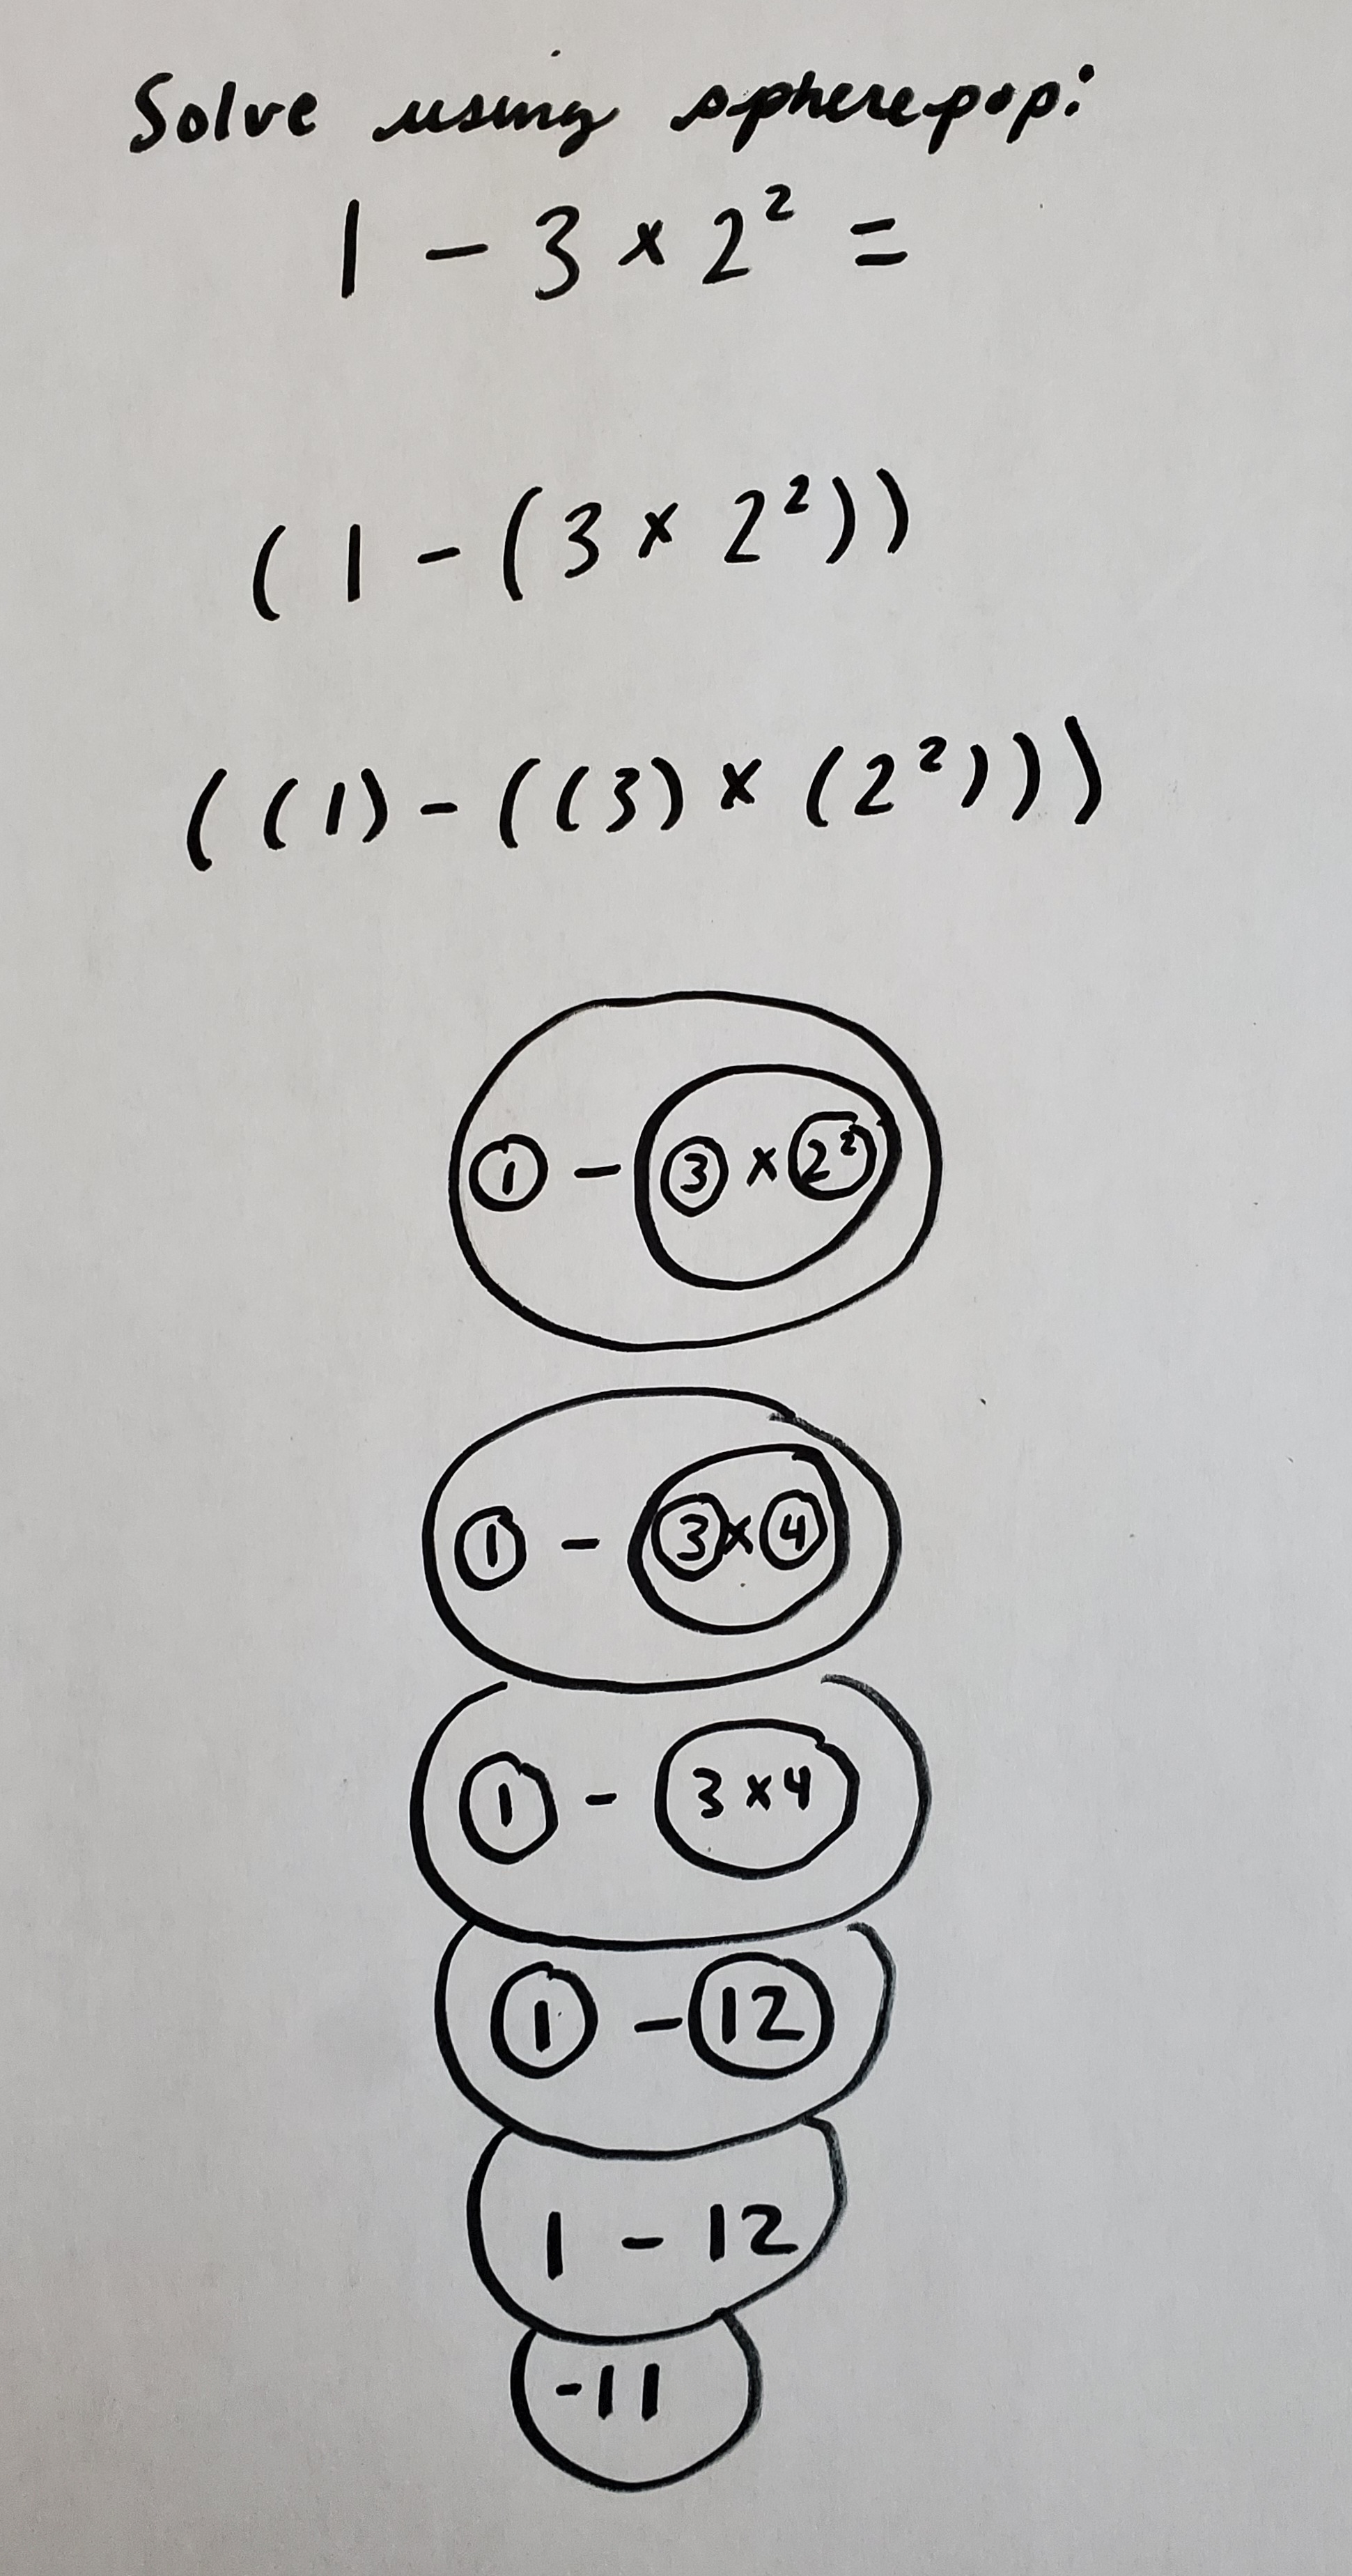 Solve using spherepop:
1 - 3 × 2² =
(1 - (3 × 2²))
((1) - ((3) × (2²)))
1 - 3 × 2²
1 - 3 × 4
1 - 3 × 4
1 - 12
1 - 12
-11